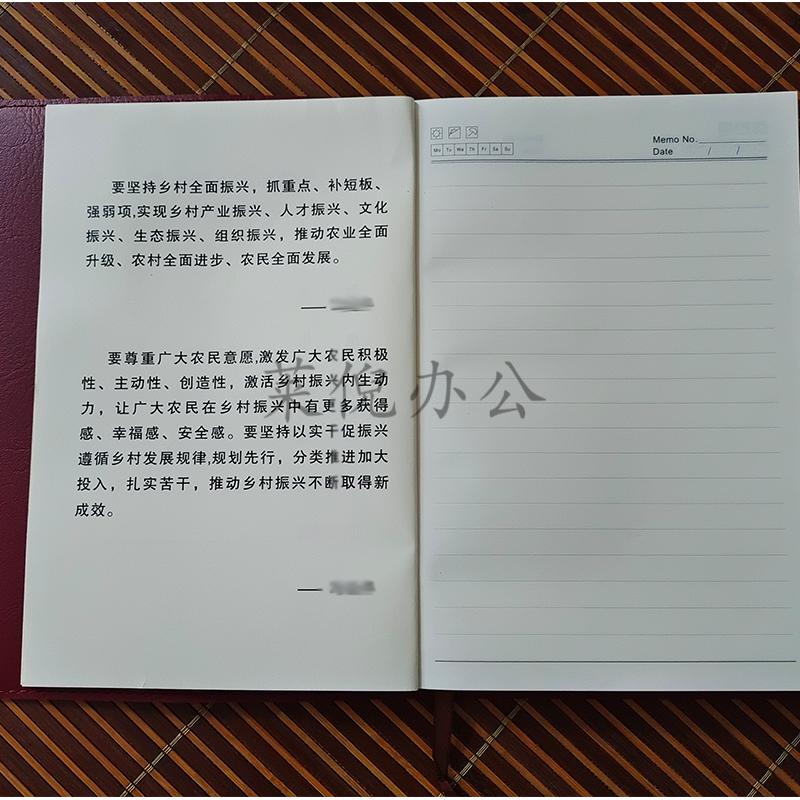 要坚持乡村全面振兴，抓重点、补短板、
强弱项,实现乡村产业振兴、人才振兴、文化
振兴、生态振兴、组织振兴，推动农业全面
升级、农村全面进步、农民全面发展。
——
要尊重广大农民意愿,激发广大农民积极
性、主动性、创造性，激活乡村振兴内生动
力，让广大农民在乡村振兴中有更多获得
感、幸福感、安全感。要坚持以实干促振兴
遵循乡村发展规律,规划先行，分类推进加大
投入，扎实苦干，推动乡村振兴不断取得新
成效。
——
Memo No.
Mo Tu We Th Fr Sa Su
Date / /
莱倪办公